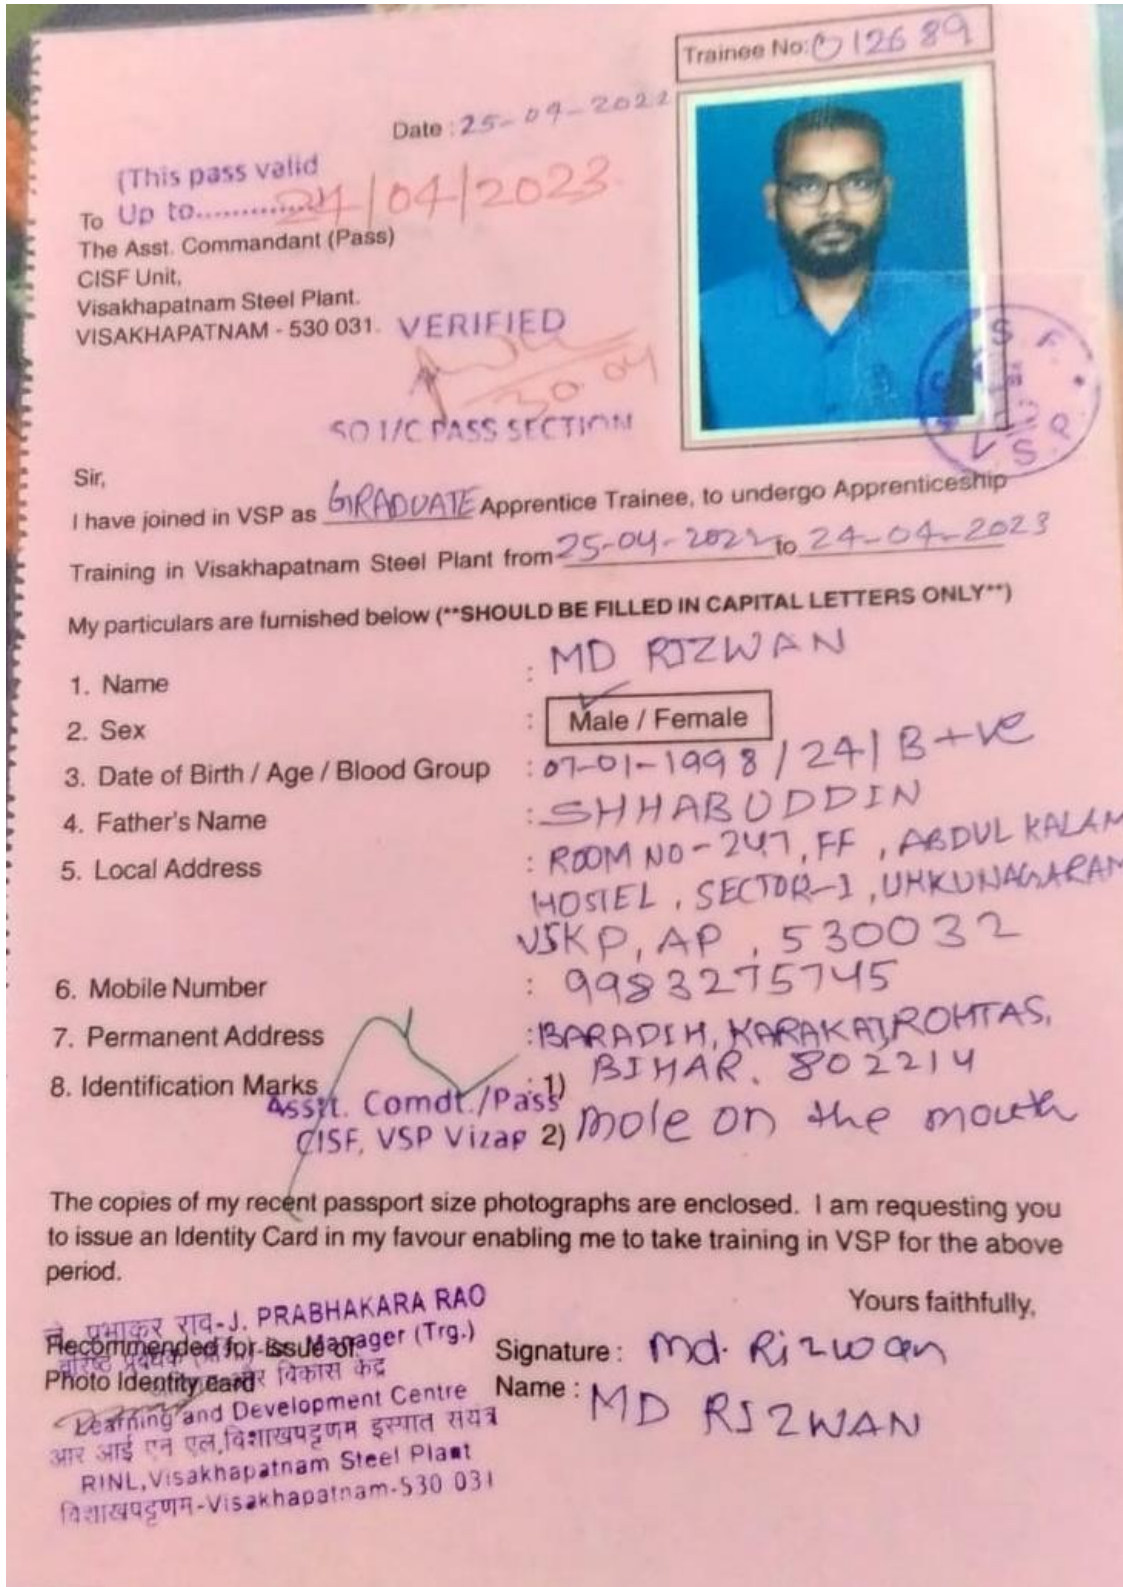 Trainee No: 012689
Date : 25-04-2022
(This pass valid
Up to............. 24/04/2023
To
The Asst. Commandant (Pass)
CISF Unit,
Visakhapatnam Steel Plant.
VISAKHAPATNAM - 530 031.
VERIFIED
30.04
SO I/C PASS SECTION
Sir,
I have joined in VSP as GRADUATE Apprentice Trainee, to undergo Apprenticeship
Training in Visakhapatnam Steel Plant from 25-04-2022 to 24-04-2023
My particulars are furnished below (**SHOULD BE FILLED IN CAPITAL LETTERS ONLY**)
1. Name : MD RIZWAN
2. Sex : Male / Female
3. Date of Birth / Age / Blood Group : 07-01-1998 / 24 / B+ve
4. Father's Name : SHHABUDDIN
5. Local Address : ROOM NO-247, FF, ABDUL KALAM
HOSTEL, SECTOR-1, UKKUNAGARAM
VSKP, AP, 530032
6. Mobile Number : 9983275745
7. Permanent Address : BARADIH, KARAKAT, ROHTAS,
BIHAR. 802214
8. Identification Marks : 1)
Asstt. Comdt./Pass
CISF, VSP Vizag 2) mole on the mouth
The copies of my recent passport size photographs are enclosed. I am requesting you
to issue an Identity Card in my favour enabling me to take training in VSP for the above
period.
Yours faithfully,
प्रभाकर राव-J. PRABHAKARA RAO
Recommended for issue of
Manager (Trg.)
Photo Identity card
और विकास केंद्र
Learning and Development Centre
आर आई एन एल,विशाखपट्टणम इस्पात संयंत्र
RINL,Visakhapatnam Steel Plant
विशाखपट्टणम-Visakhapatnam-530 031
Signature : Md. Rizwan
Name : MD RIZWAN